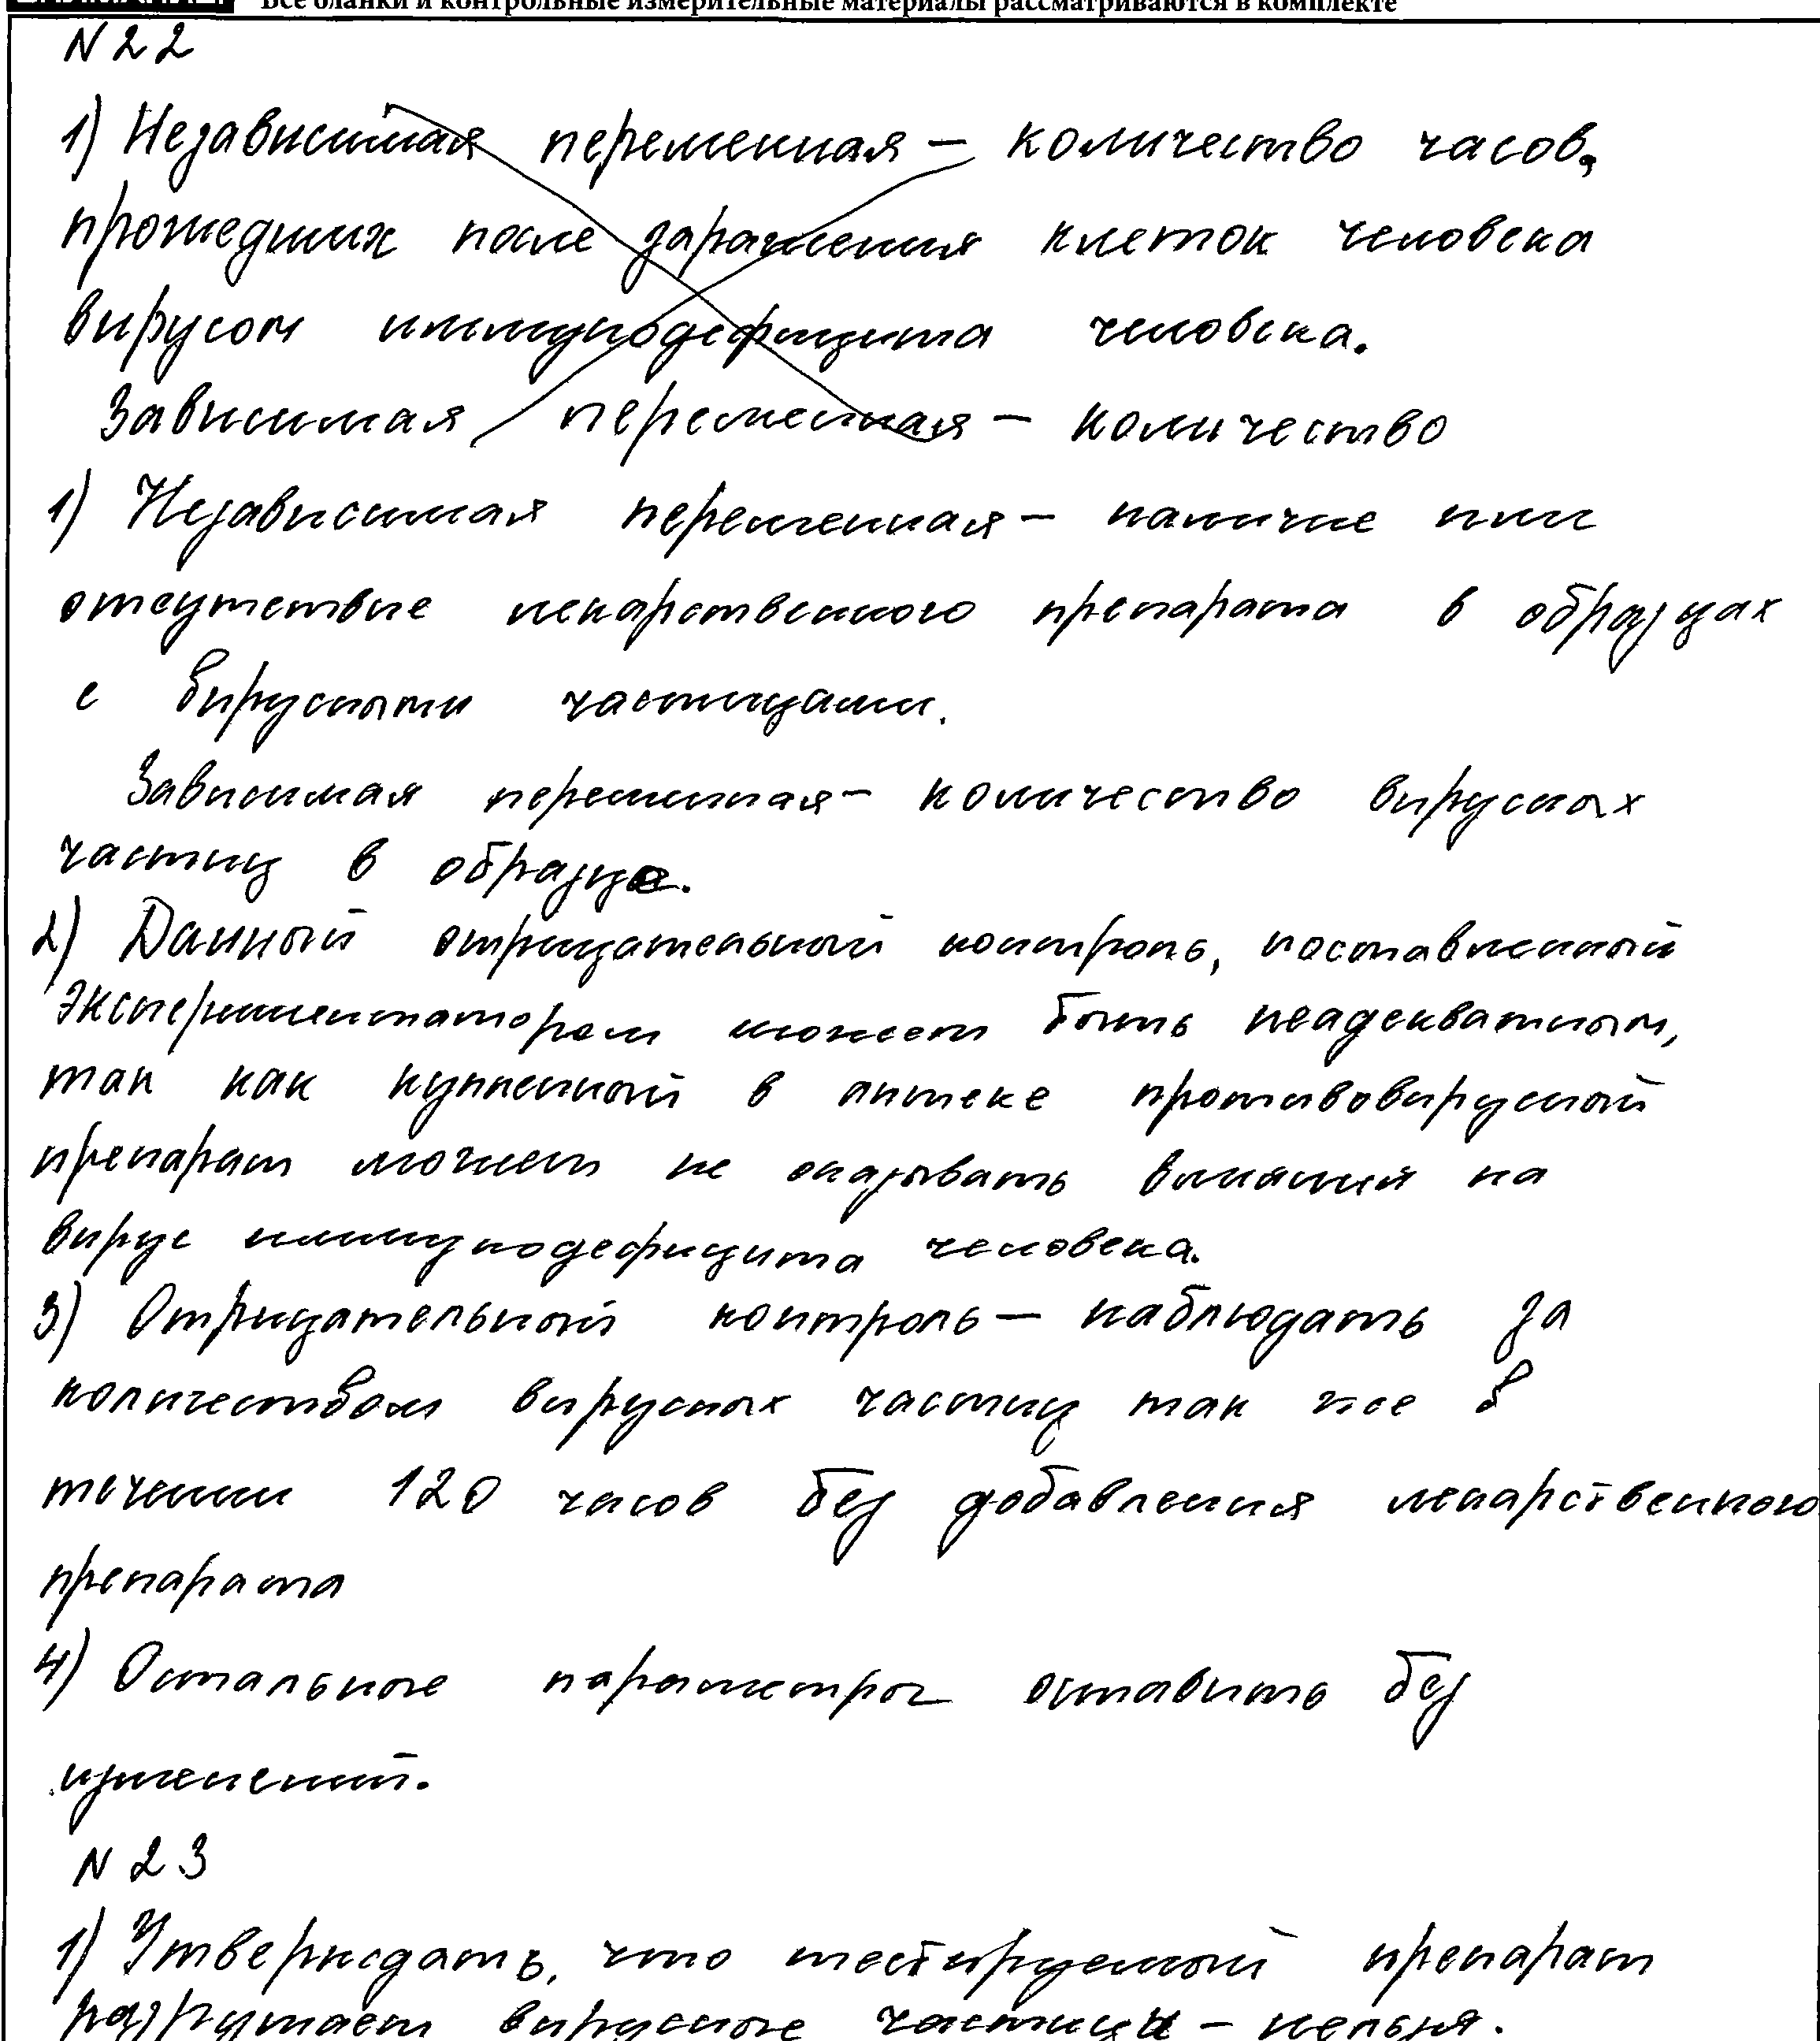 Все бланки и контрольные измерительные материалы рассматриваются в комплекте
N 22
1) Независимая переменная – количество часов,
прошедших после заражения клеток человека
вирусом иммунодефицита человека.
Зависимая переменная – количество
1) Независимая переменная – наличие или
отсутствие лекарственного препарата в образцах
с вирусными частицами.
Зависимая переменная – количество вирусных
частиц в образце.
2) Данный отрицательный контроль, поставленный
экспериментатором может быть неадекватным,
так как купленный в аптеке противовирусный
препарат может не оказывать влияний на
вирус иммунодефицита человека.
3) Отрицательный контроль – наблюдать за
количеством вирусных частиц так же в
течении 120 часов без добавления лекарственного
препарата
4) Остальные параметры оставить без
изменений.
N 23
1) Утверждать, что тестируемый препарат
разрушает вирусные частицы – нельзя.